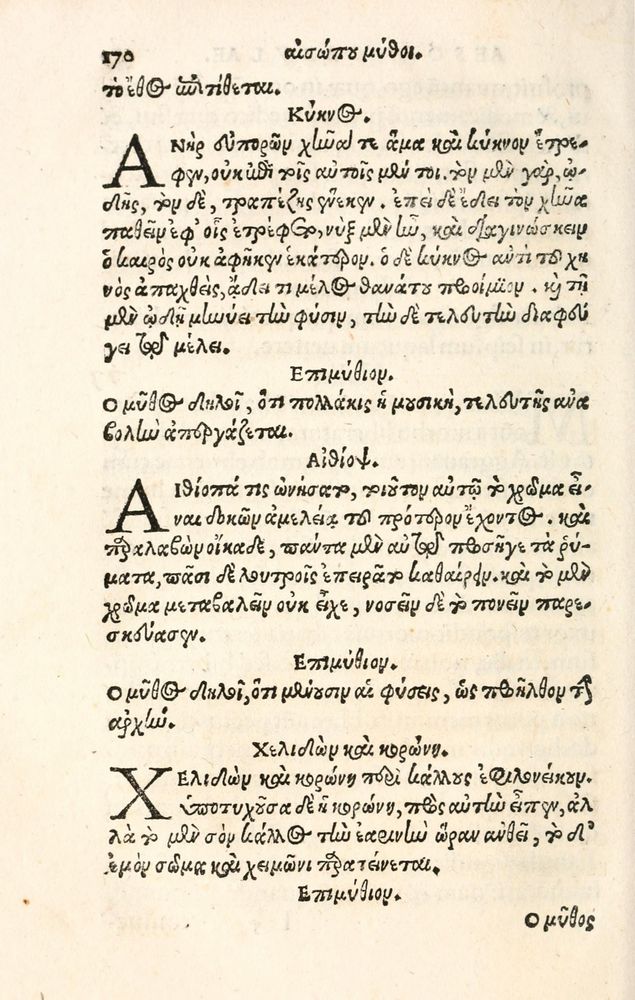 170 αἰσώπου μῦθοι.
τὸ ἔθος ἀντιτίθεται.
Κύκνος.
ΑΝὴρ εὐπορῶν χῆνά τε ἅμα καὶ κύκνον ἔτρε-
φεν, οὐκ ἐπὶ τοῖς αὐτοῖς μέν τοι. τὸν μὲν γὰρ, ᾠ-
δῆς, τὸν δὲ, τραπέζης ἕνεκεν. ἐπεὶ δὲ ἔδει τὸν χῆνα
παθεῖν ἐφ' οἷς ἐτρέφετο, νὺξ μὲν ἦν, καὶ διαγινώσκειν
ὁ καιρὸς οὐκ ἀφῆκεν ἑκάτερον. ὁ δὲ κύκνος ἀντὶ τοῦ χη
νὸς ἀπαχθεὶς, ᾄδει τι μέλος θανάτου προοίμιον. καὶ τῇ
μὲν ᾠδῇ μηνύει τὴν φύσιν, τὴν δὲ τελευτὴν διαφεύ
γει τῷ μέλει.
Επιμύθιον.
Ο μῦθος δηλοῖ, ὅτι πολλάκις ἡ μουσικὴ, τελευτῆς ἀνα
βολὴν ἀπεργάζεται.
Αἰθίοψ.
ΑΙθίοπά τις ὠνήσατο, τοιοῦτον αὐτῷ τὸ χρῶμα εἶ-
ναι δοκῶν ἀμελείᾳ τοῦ πρότερον ἔχοντος. καὶ
παραλαβὼν οἴκαδε, πάντα μὲν αὐτῷ προσῆγε τὰ ῥύ-
ματα, πᾶσι δὲ λουτροῖς ἐπειρᾶτο καθαίρειν. καὶ τὸ μὲν
χρῶμα μεταβαλεῖν οὐκ εἶχε, νοσεῖν δὲ τὸ πονεῖν παρε-
σκεύασεν.
Επιμύθιον.
Ο μῦθος δηλοῖ, ὅτι μένουσιν αἱ φύσεις, ὡς προῆλθον τὴν
ἀρχήν.
Χελιδὼν καὶ κορώνη.
ΧΕλιδὼν καὶ κορώνη περὶ κάλλους ἐφιλονείκουν.
ὑποτυχοῦσα δὲ ἡ κορώνη, πρὸς αὐτὴν εἶπεν, ἀλ
λὰ τὸ μὲν σὸν κάλλος τὴν ἐαρινὴν ὥραν ἀνθεῖ, τὸ δ'
ἐμὸν σῶμα καὶ χειμῶνι παρατείνεται.
Επιμύθιον.
Ο μῦθος